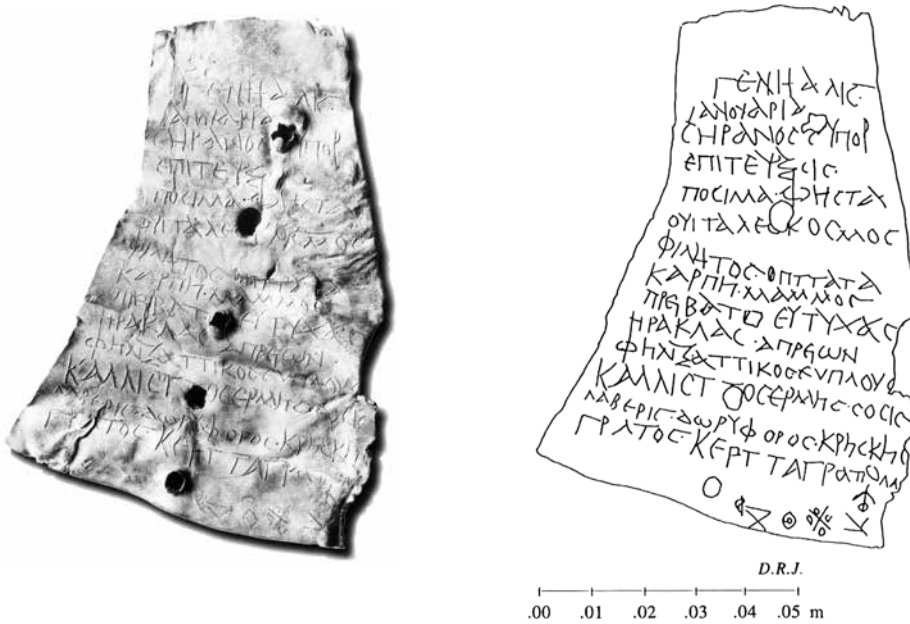 ΓΕΝΗΑΛΙC·
ΙΑΝΟΥΑΡΙΑ
CΗΡΑΝΟC CΥΠΟΡ
ΠΟCΙΜΑ·ΦΗCΤΑ
ΟΥΙΤΑΛΕ CΚΟCΜΟC
ΦΙΛΗΤΟC·ΟΠΤΤΑΤΑ
ΚΑΡΠΗ·ΜΑΜΜΟC
ΕΥΤΥΧΑC
ΗΡΑΚΛΑC·ΑΠΡΕΩΝ
ΑΤΤΙΚΟC ΕΥΠΛΟΥC
ΚΑΛΛΙCΤ ΟCΕΡΜΗC·CΟCΙC
ΛΑΒΕΡΙC·ΔΩΡΥΦΟΡΟC·ΚΡΗCΚΗC
ΓΡΑΤΟC·ΚΕΡΤ ΤΑΓΡΑΠΟΛΑ
D.R.J.
.00 .01 .02 .03 .04 .05 m